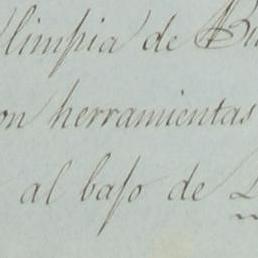 limpia de
on herramientas
al bajo de